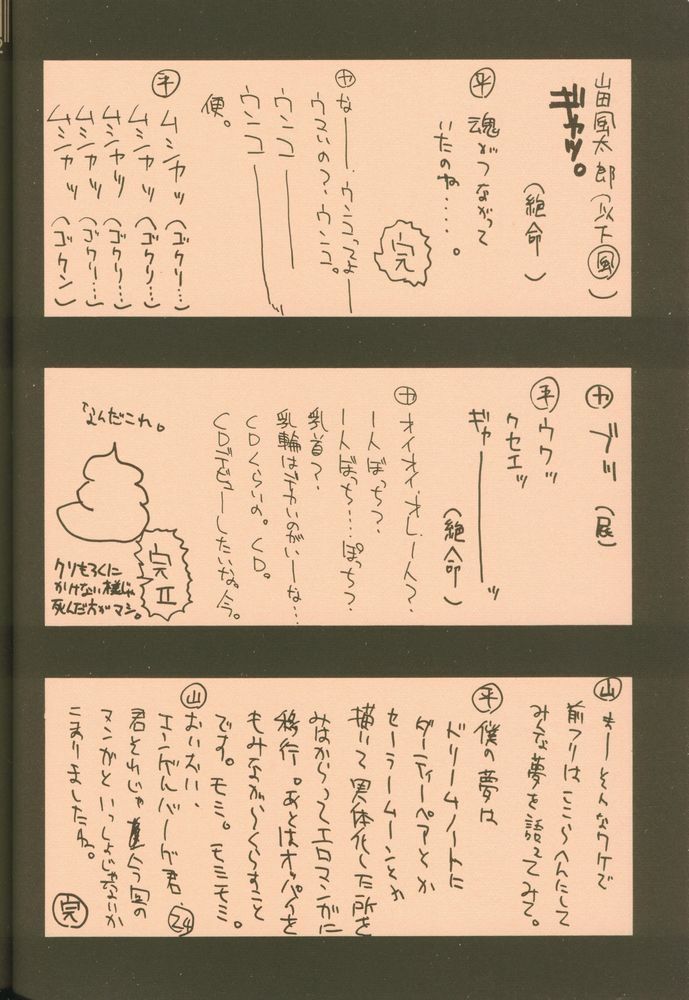 山田風太郎(以下風)
ギャッ。
(絶命)
平 魂がつながって
いたのね‥‥。
完
ヤ な――、ウンコってよ――
ウマいの?、ウンコ。
ウンコ――
ウンコ――
便。
平 ムシャッ(ゴクリ…)
ムシャッ(ゴクリ…)
ムシャッ(ゴクリ…)
ムシャッ(ゴクリ…)
ムシャッ(ゴクン)
カ ブッ(屁)
平 ウウッ
クセエッ
ギャ――――ッ
(絶命)
カ オイオイ、オレ一人?、
一人ぼっち?、
一人ぼっち…ぽっち?、
乳首?、
乳輪はデカいのがいーな…
CDくらいの。CD。
CDデビューしたいな。今。
なんだこれ。
完Ⅱ
クソもろくに
かけない様じゃ
死んだ方がマシ。
山 まーそんなワケで
前フリはここらへんにして
みんな夢を語ってみて。
平 僕の夢は
ドリームノートに
ダーティーペアとか
セーラームーンとか
描いて実体化した所を
みはからってエロマンガに
移行。あとはオッパイを
もみながらくらすこと
です。モミ。モミモミ。
山 おいおい、
エンゲルバーゲ君、24
君それじゃ今回の
マンガといっしょじゃないか
こまりましたね。
完